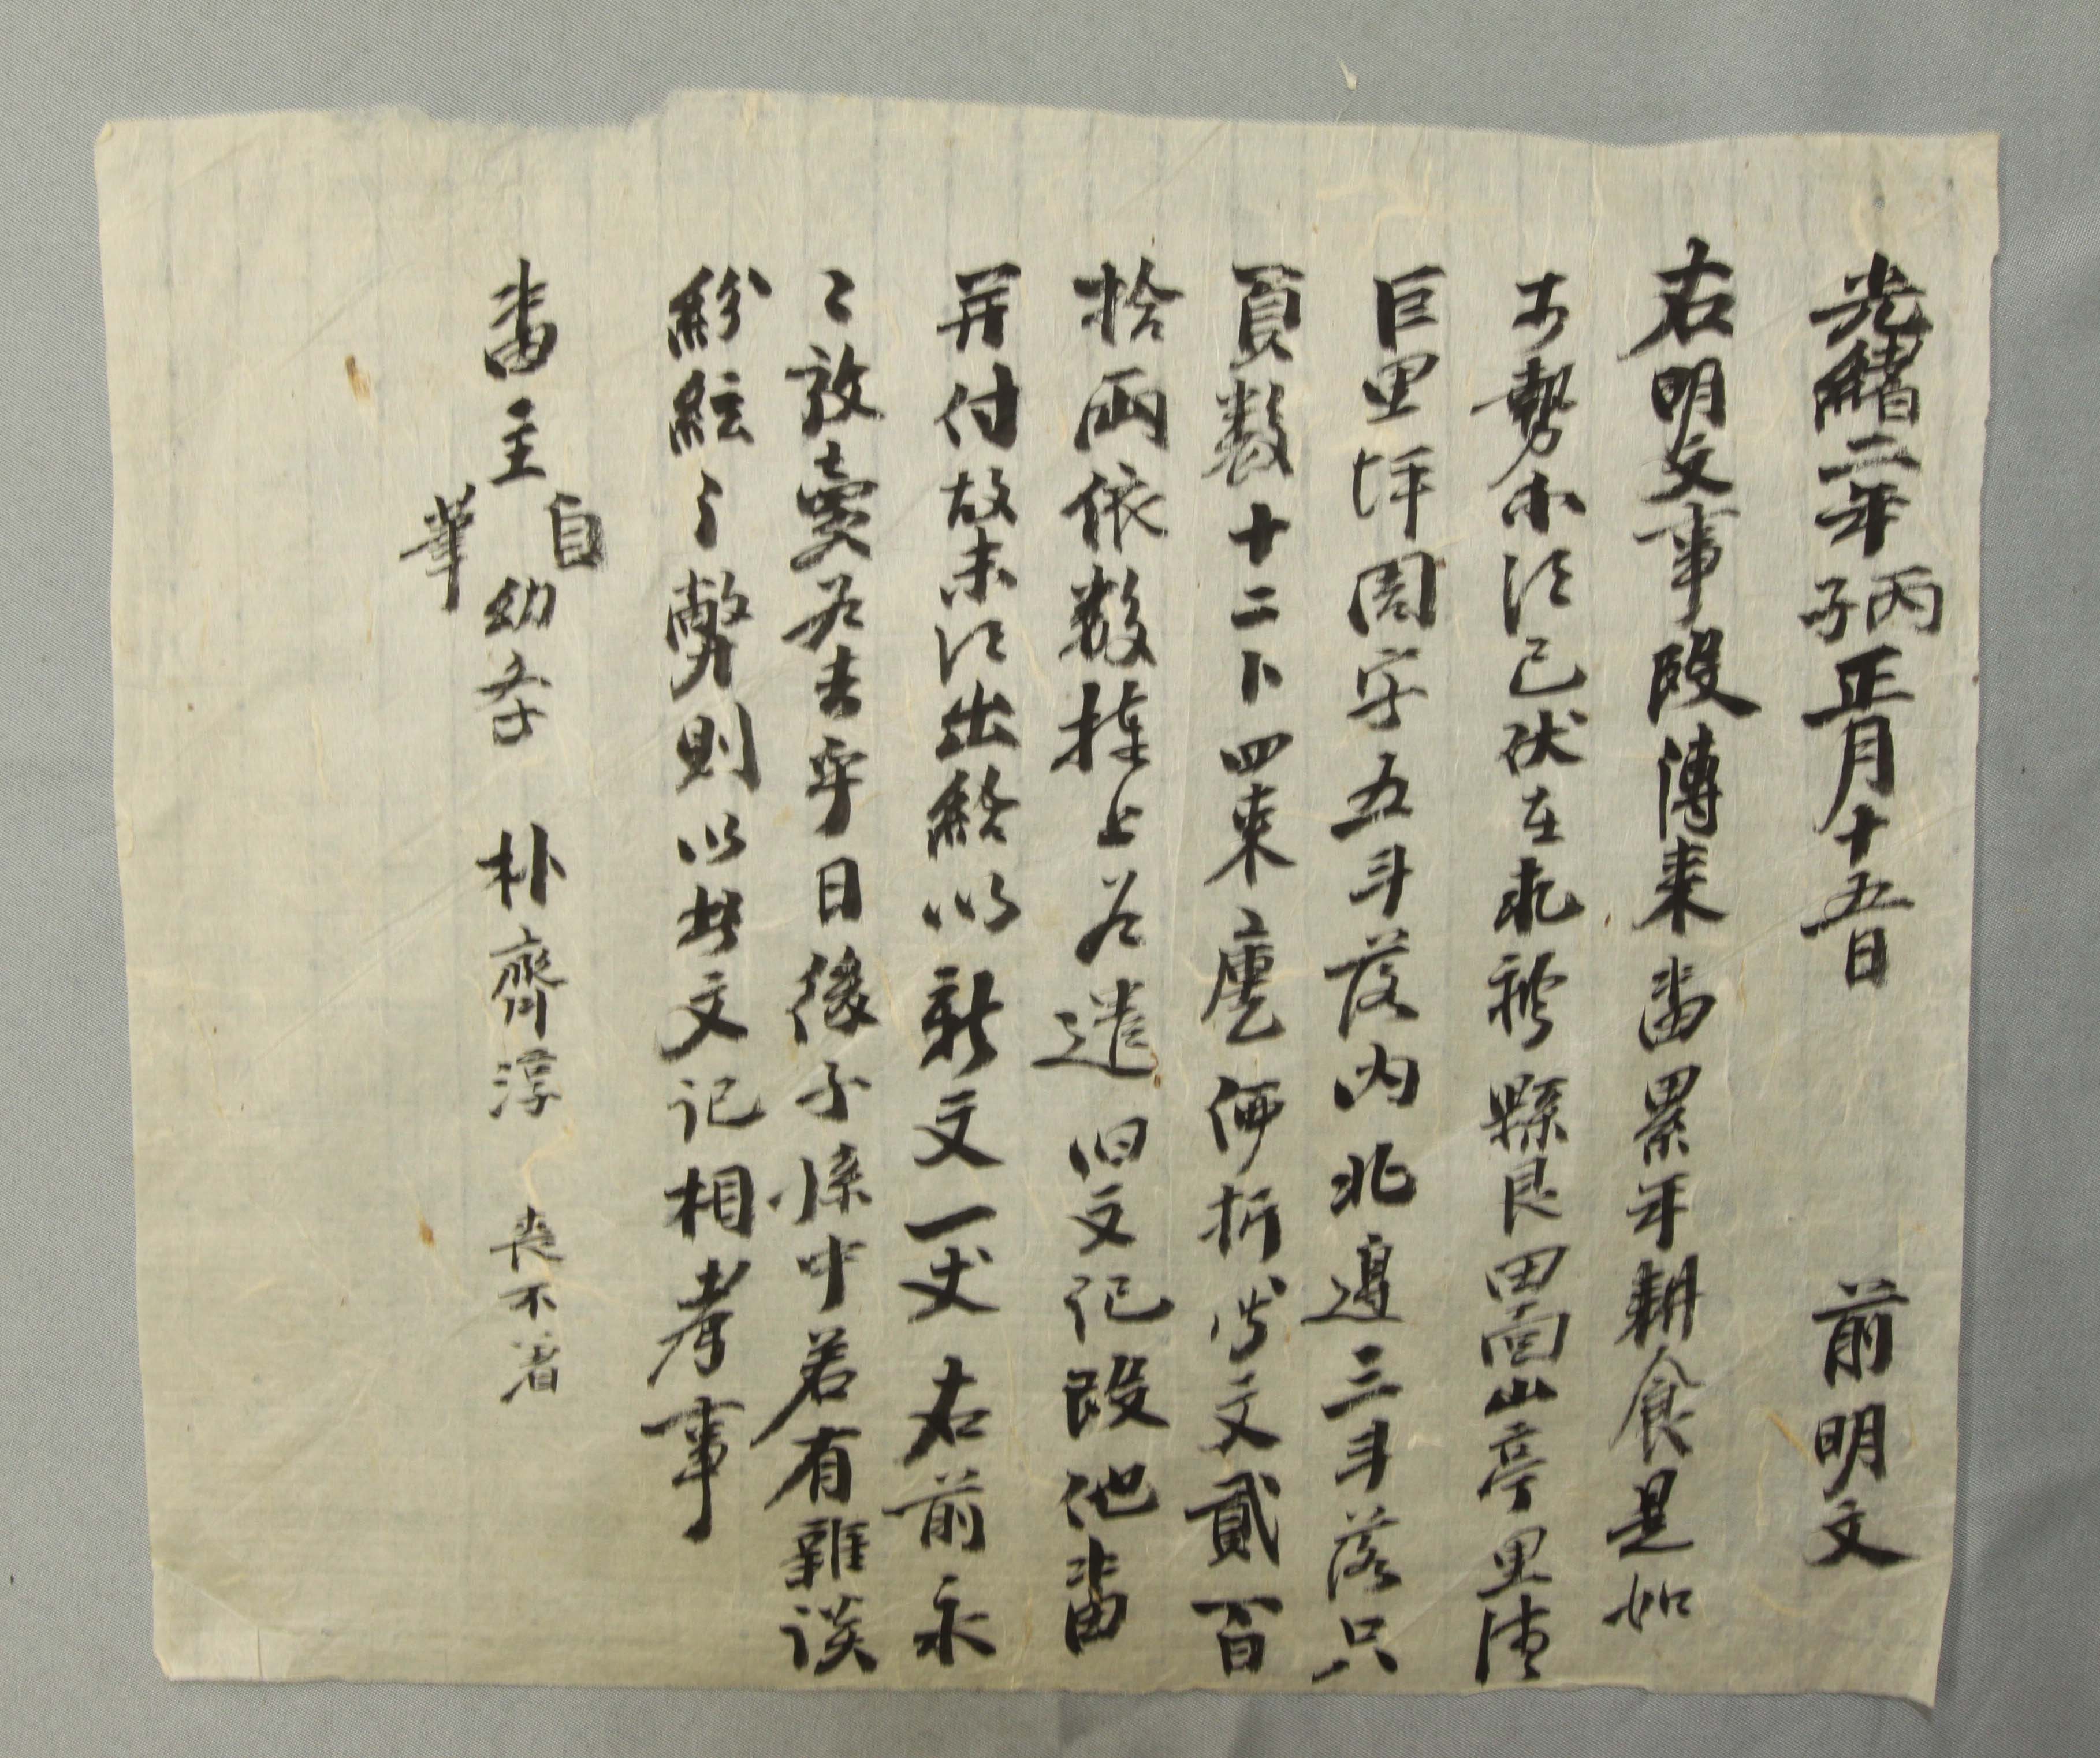 光緒二年丙子正月十五日 前明文
右明文事段傳來畓累年耕食是如
可勢不得已伏在 縣良田面山亭里德
巨里坪周字五斗落內北邊三斗落只
負數十二卜四束廤價折 文貳百
拾兩依數捧上為遣旧文記段他畓
幷付故未得出給以新文一丈右前永
〻放賣為去乎日後子孫中若有雜談
紛紜之弊則以此文記相考事
畓主自筆幼學 朴齊淳 喪不着